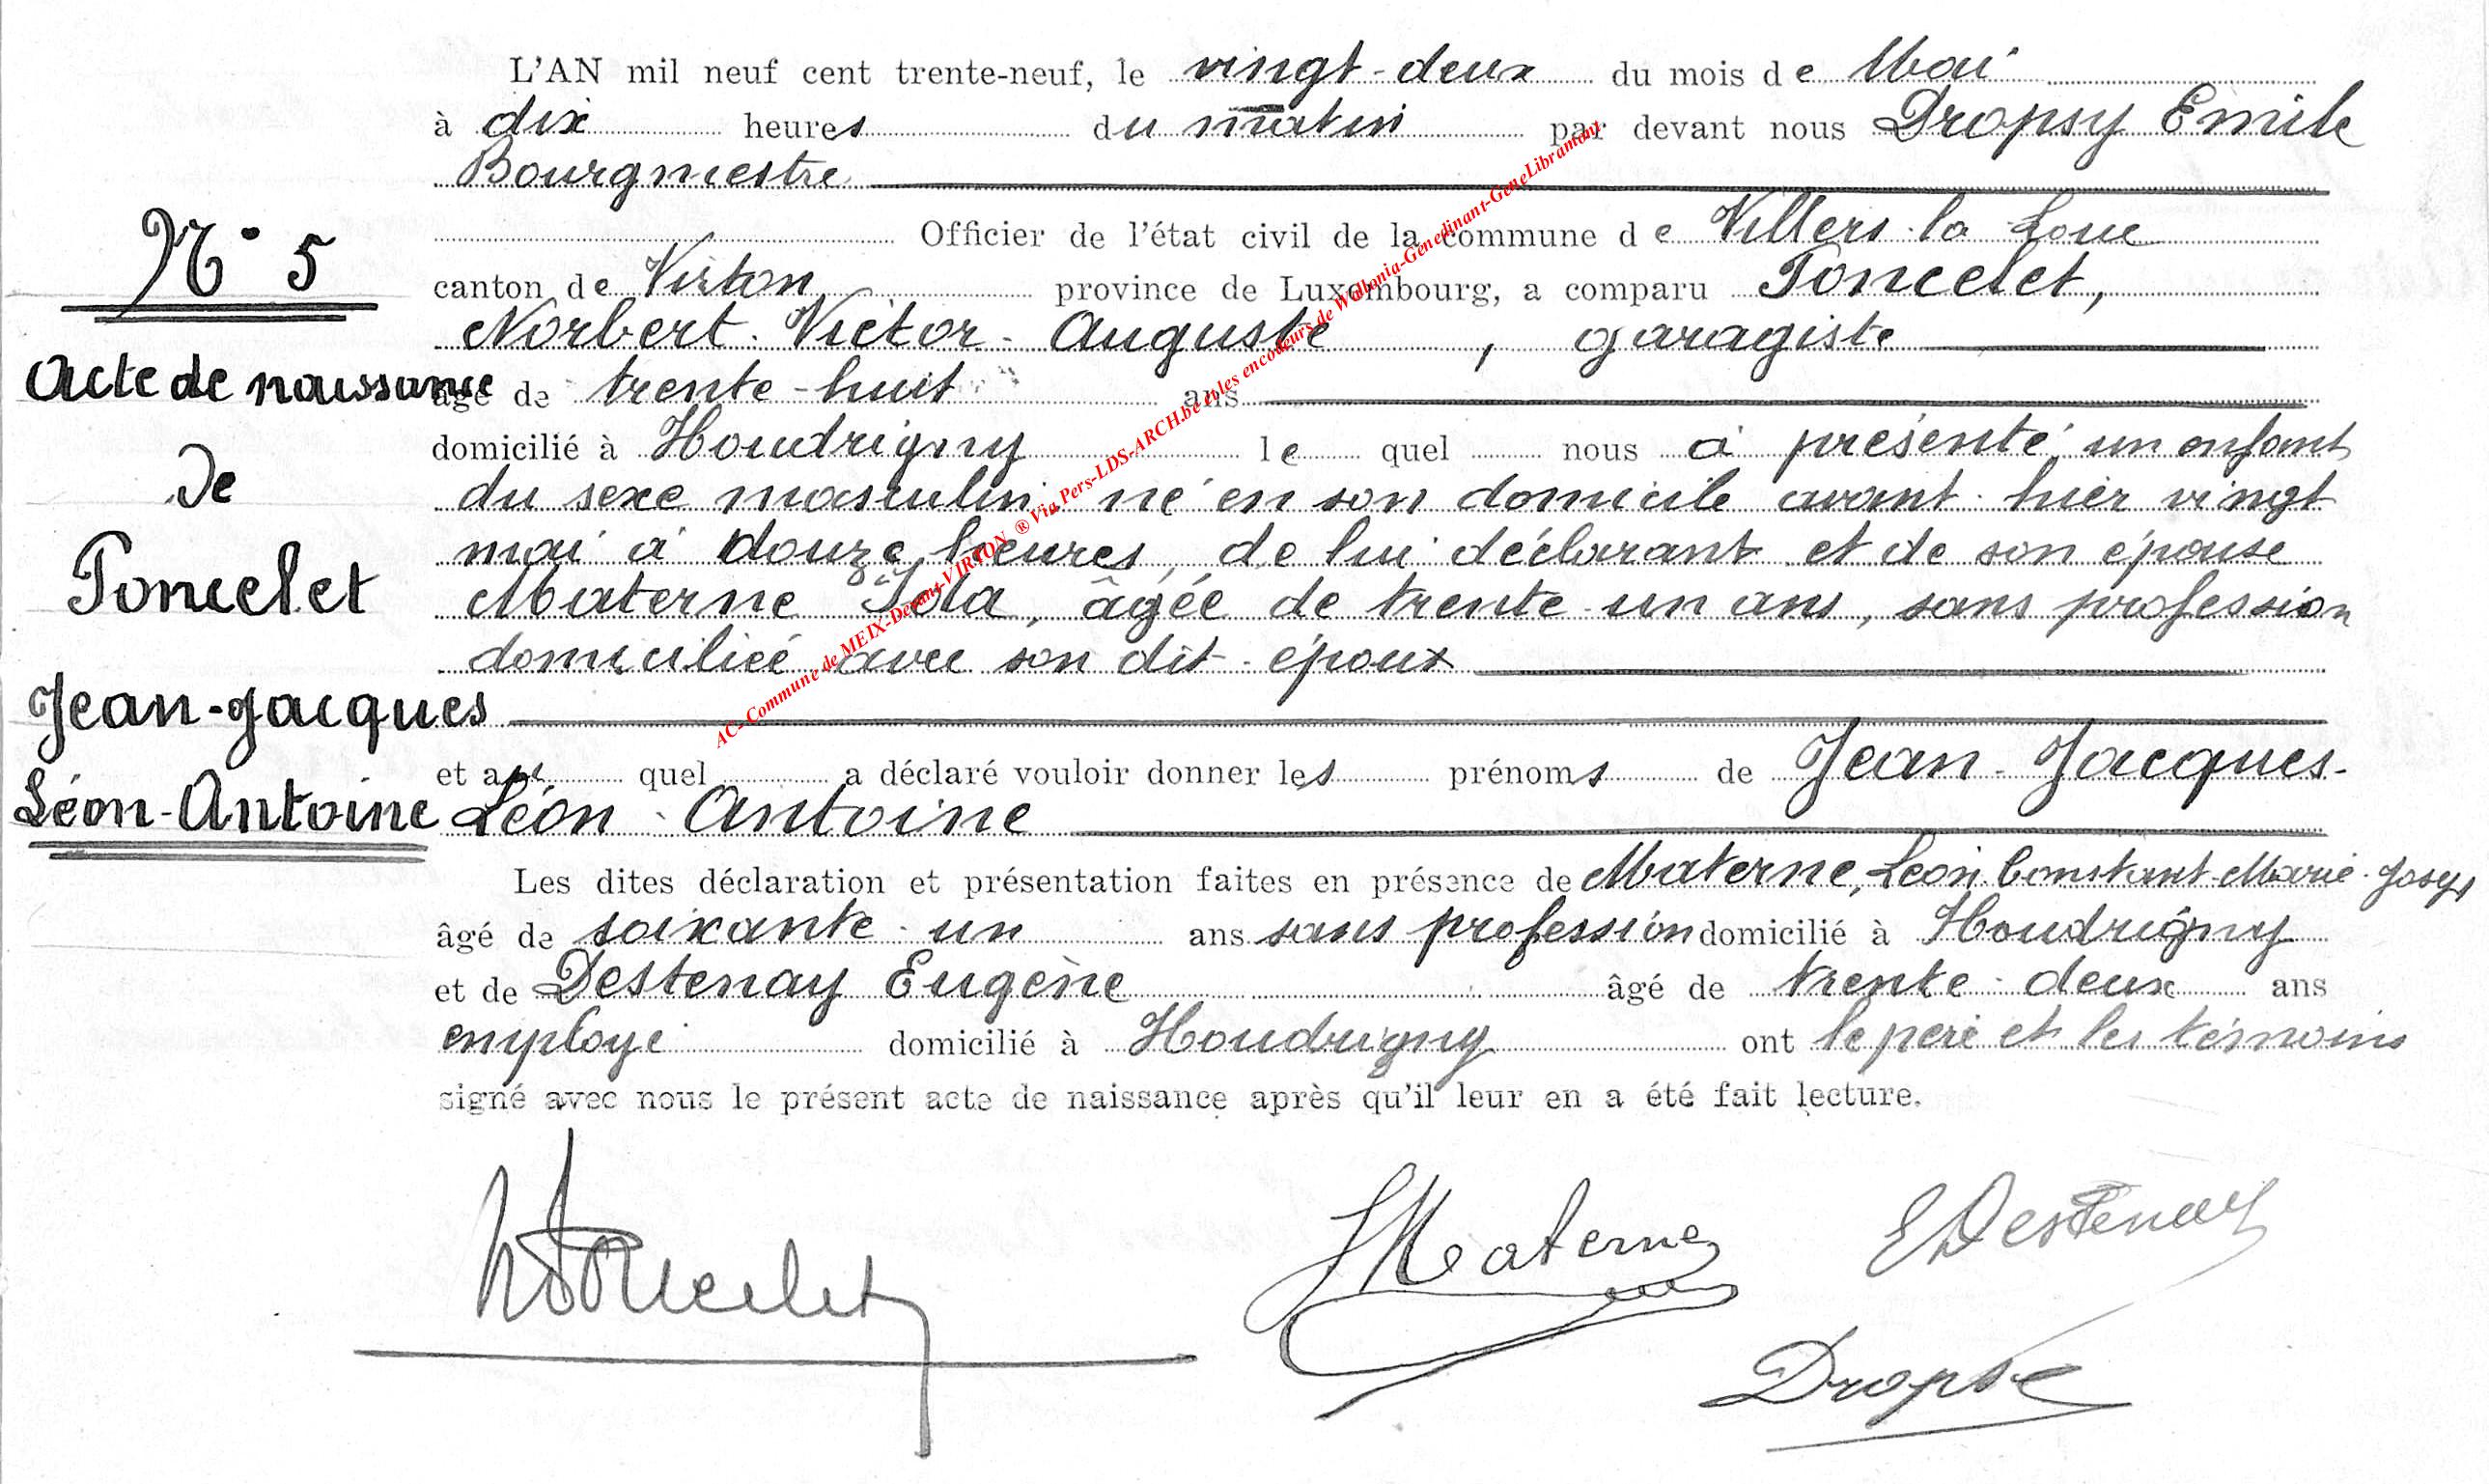 L'AN mil neuf cent trente-neuf, le vingt-deux du mois de Mai
à dix heures du matin par devant nous Dropsy Emile
Bourgmestre
Officier de l'état civil de la commune de Villers-la-Loue
canton de Virton province de Luxembourg, a comparu Poncelet,
Norbert-Victor-Auguste, garagiste
âgé de trente-huit ans
domicilié à Houdrigny le quel nous a présenté un enfant
du sexe masculin né en son domicile avant-hier vingt
mai à douze heures, de lui déclarant et de son épouse
Materne Ida, âgée de trente-un ans, sans profession
domiciliée avec son dit-époux
et au quel a déclaré vouloir donner les prénoms de Jean-Jacques-
Léon-Antoine
Les dites déclaration et présentation faites en présence de Materne, Léon Constant-Marie-Joseph
âgé de soixante-un ans sans profession domicilié à Houdrigny
et de Destenay Eugène âgé de trente-deux ans
employé domicilié à Houdrigny ont le père et les témoins
signé avec nous le présent acte de naissance après qu'il leur en a été fait lecture.
N° 5
Acte de naissance
de
Poncelet
Jean-Jacques
Léon-Antoine
AC-Commune de MEIX-Devant-VIRTON ® Via Pers-LDS-ARCH.be et les encodeurs de Wallonia-Genedinant-GeneLibramont
N Poncelet
L Materne
E Destenay
Dropsy